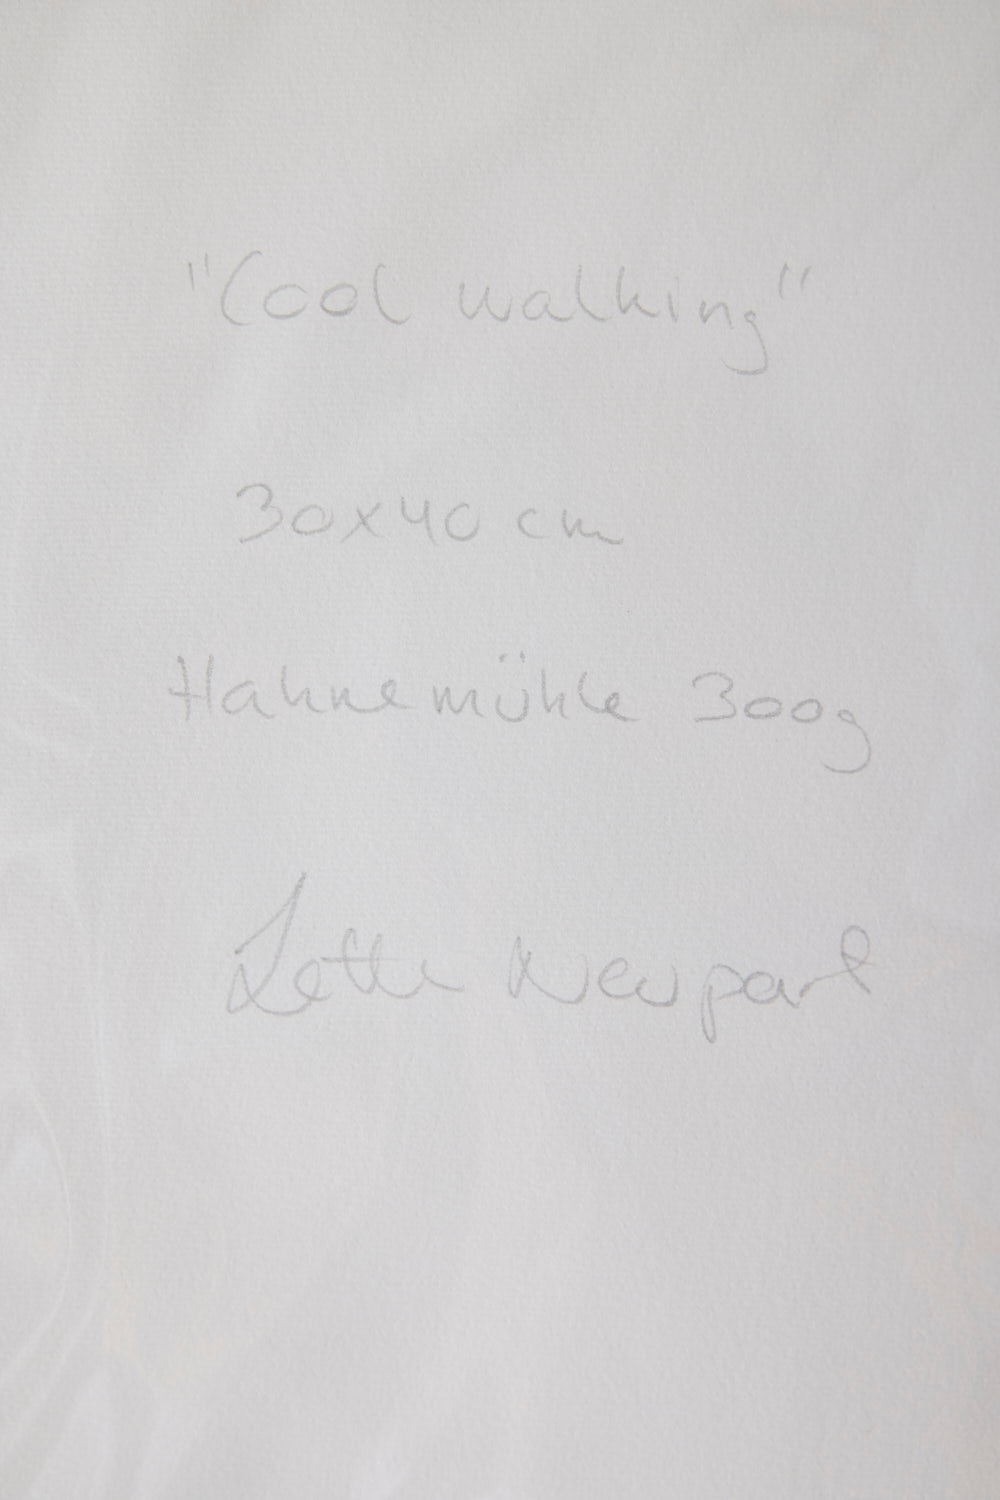 "Cool walking"
30x40 cm
Hahnemühle 300g
Neupart